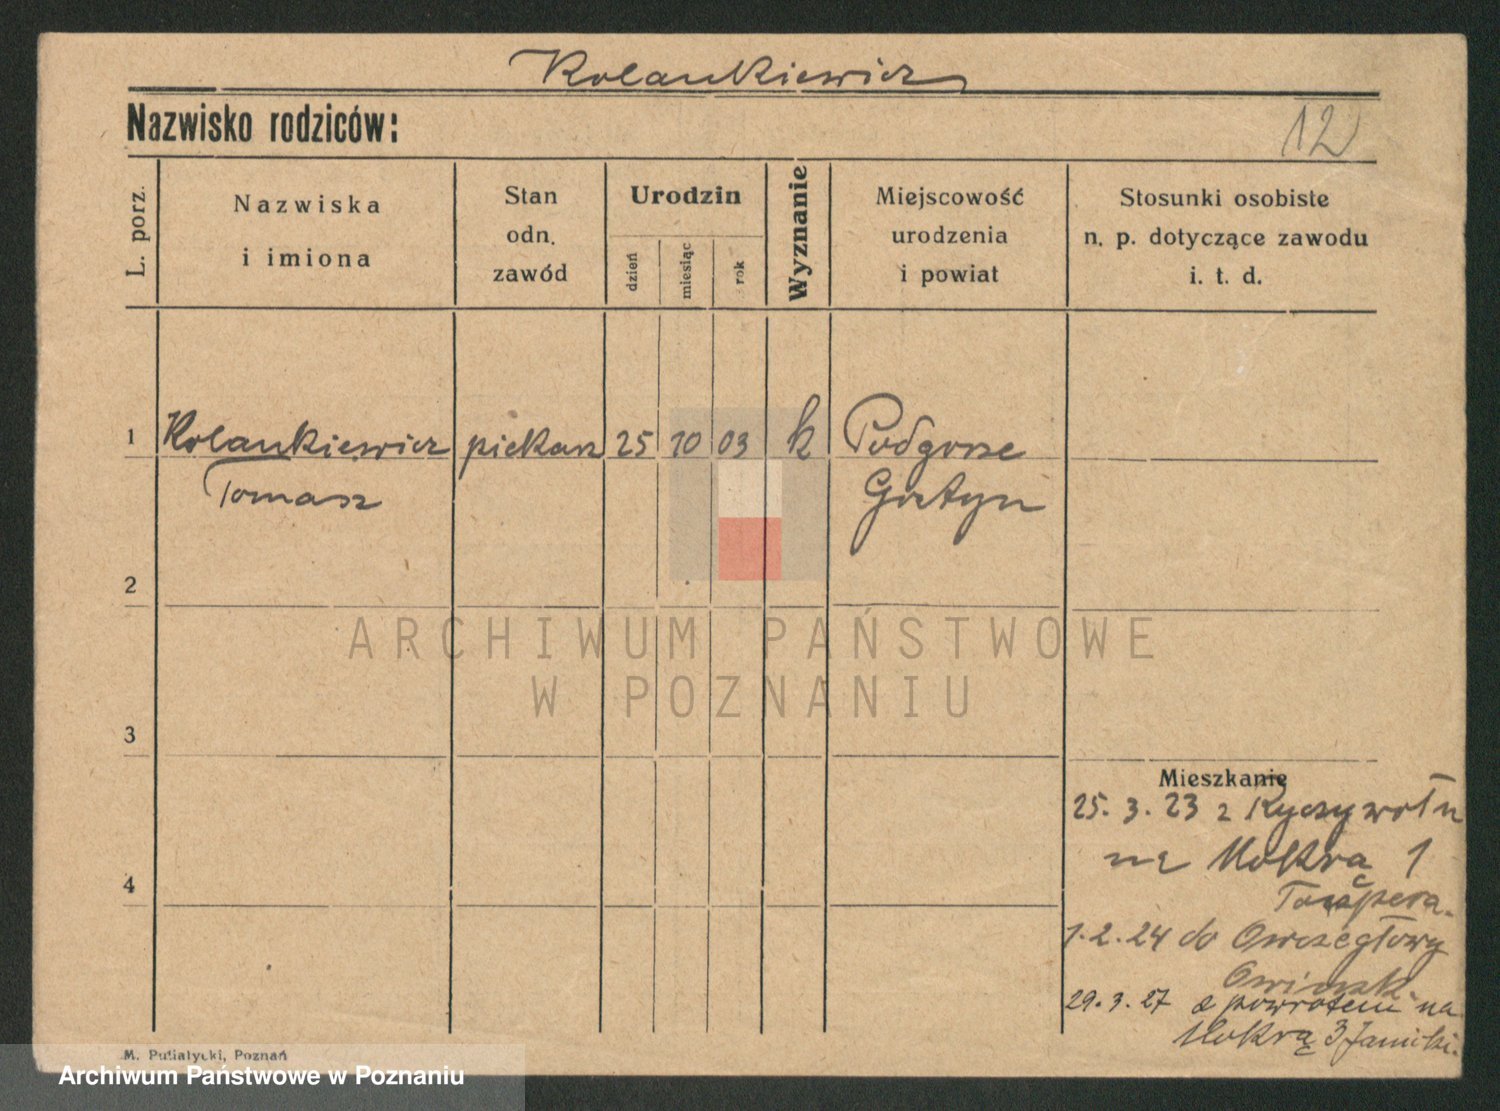 Kolankiewicz
Nazwisko rodziców:
12
L. porz.
Nazwiska
i imiona
Stan
odn.
zawód
Urodzin
dzień
miesiąc
rok
Wyznanie
Miejscowość
urodzenia
i powiat
Stosunki osobiste
n. p. dotyczące zawodu
i. t. d.
1
Kolankiewicz piekarz 25 10 03 k Podgorze
Tomasz Gostyn
2
ARCHIWUM PAŃSTWOWE
W POZNANIU
3
Mieszkanie
25. 3. 23 z Ryczywołu
na Mokrą 1
4
1. 2. 24 do Owczegłowy
29. 3. 27 z powrotem na
Mokrą 3
M. Putiatycki, Poznań
Archiwum Państwowe w Poznaniu